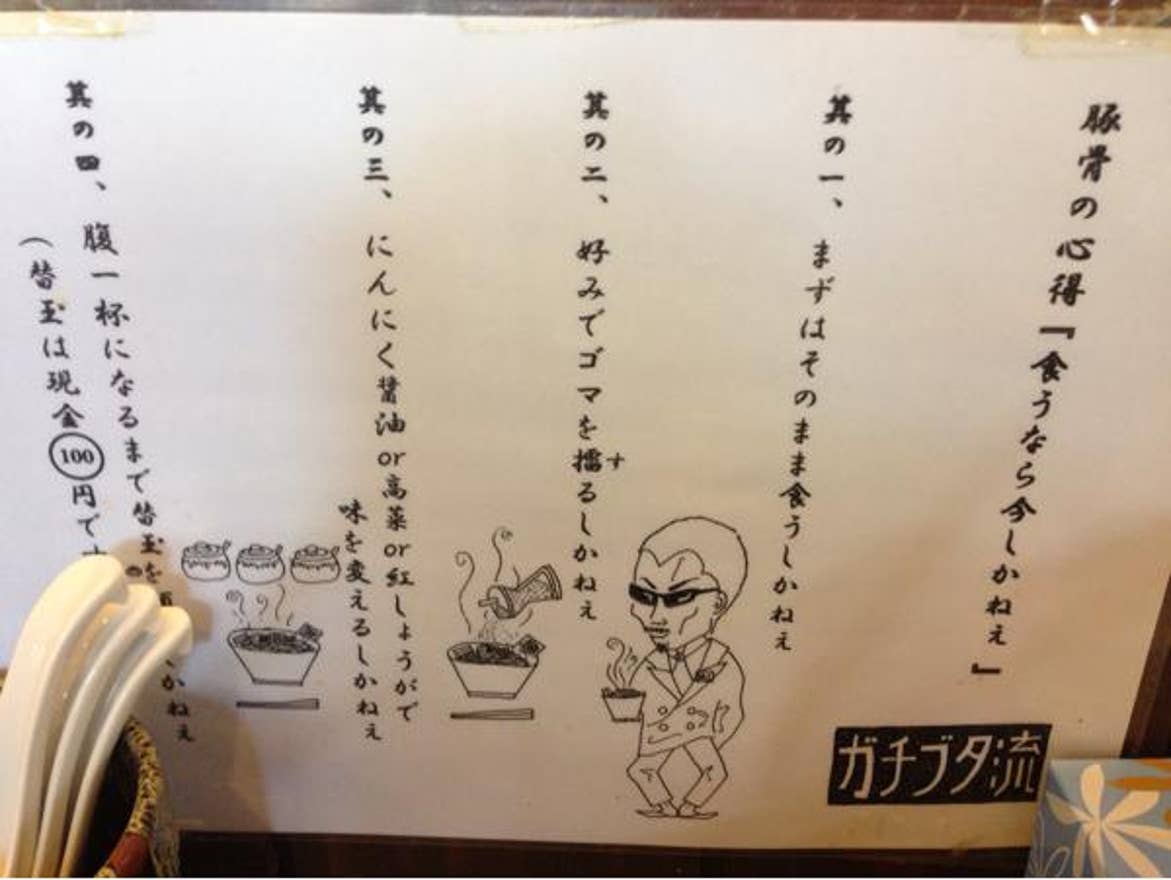 豚骨の心得『食うなら今しかねぇ』
其の一、まずはそのまま食うしかねぇ
其の二、好みでゴマを擂るしかねぇ
す
其の三、にんにく醤油or高菜or紅しょうがで
味を変えるしかねぇ
其の四、腹一杯になるまで替玉を
かねぇ
（替玉は現金100円で
ガチブタ流